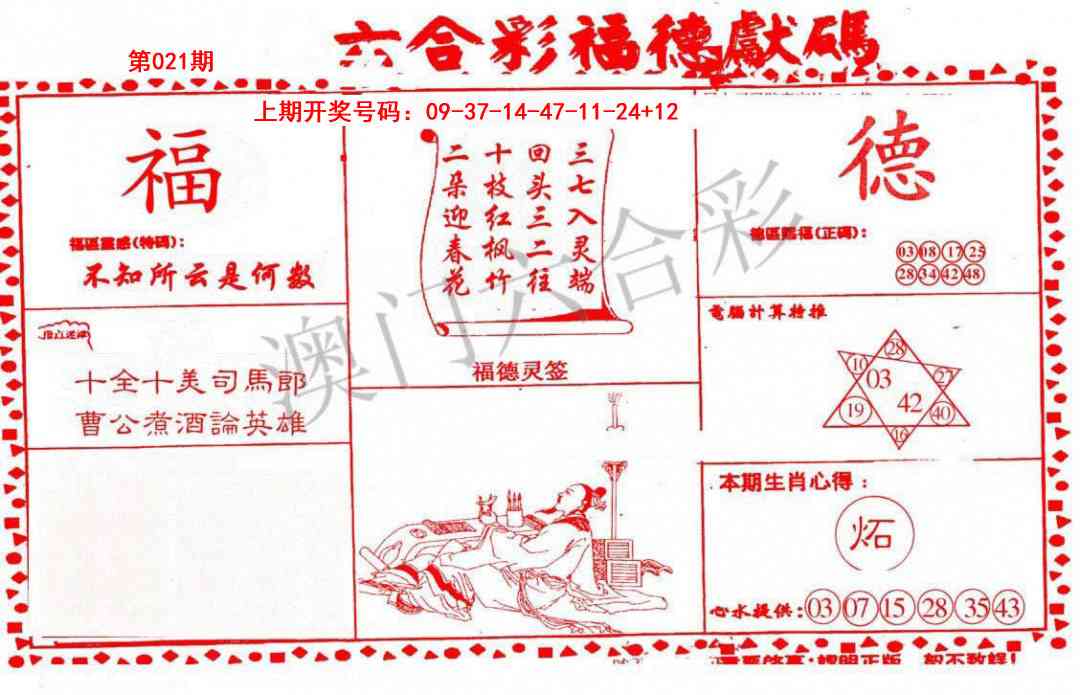 六合彩福德獻碼
第021期
上期开奖号码：09-37-14-47-11-24+12
福
福區靈感(特碼):
不知所云是何数
十全十美司馬郎
曹公煮酒論英雄
三七入灵端
回头三二往
十枝红枫竹
二朵迎春花
福德灵签
德
德區賜福(正碼):
03 08 17 25
28 34 42 48
電腦計算特推
28
10 27
03
42
19 40
16
本期生肖心得：
炻
心水提供:03 07 15 28 35 43
澳门六合彩